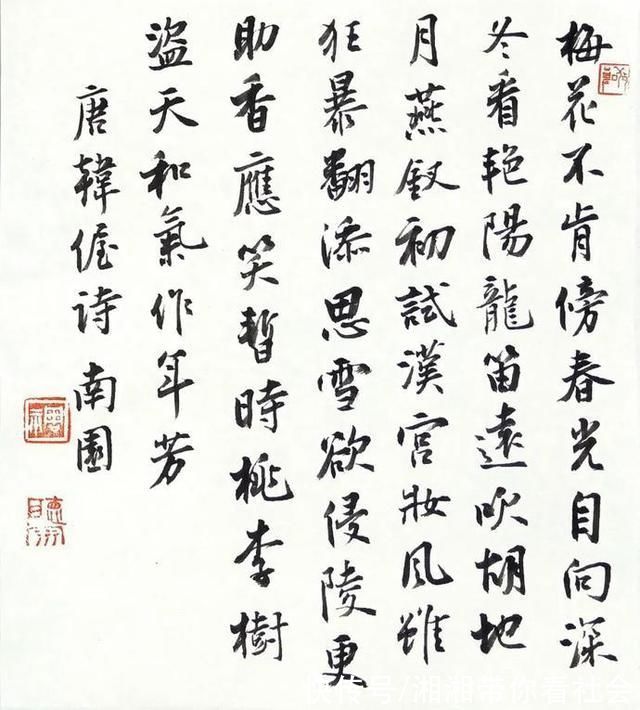 梅花不肯傍春光自向深
冬看艳陽龍笛遠吹胡地
月燕釵初試漢宮妝風雖
狂暴翻添思雪欲侵陵更
助香應笑暫時桃李樹
盜天和氣作年芳
唐韓偓詩 南園
快传号/湘湘带你看社会